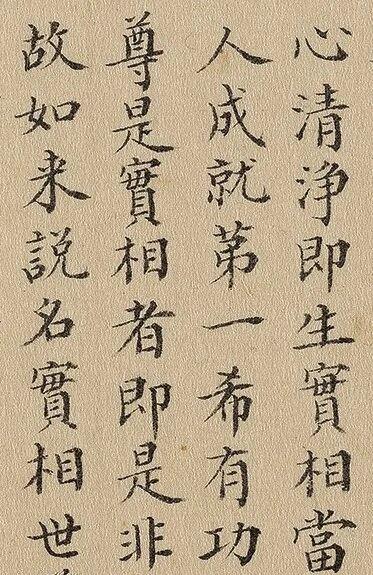 心清淨即生實相當
人成就第一希有功
尊是實相者即是非
故如来説名實相世